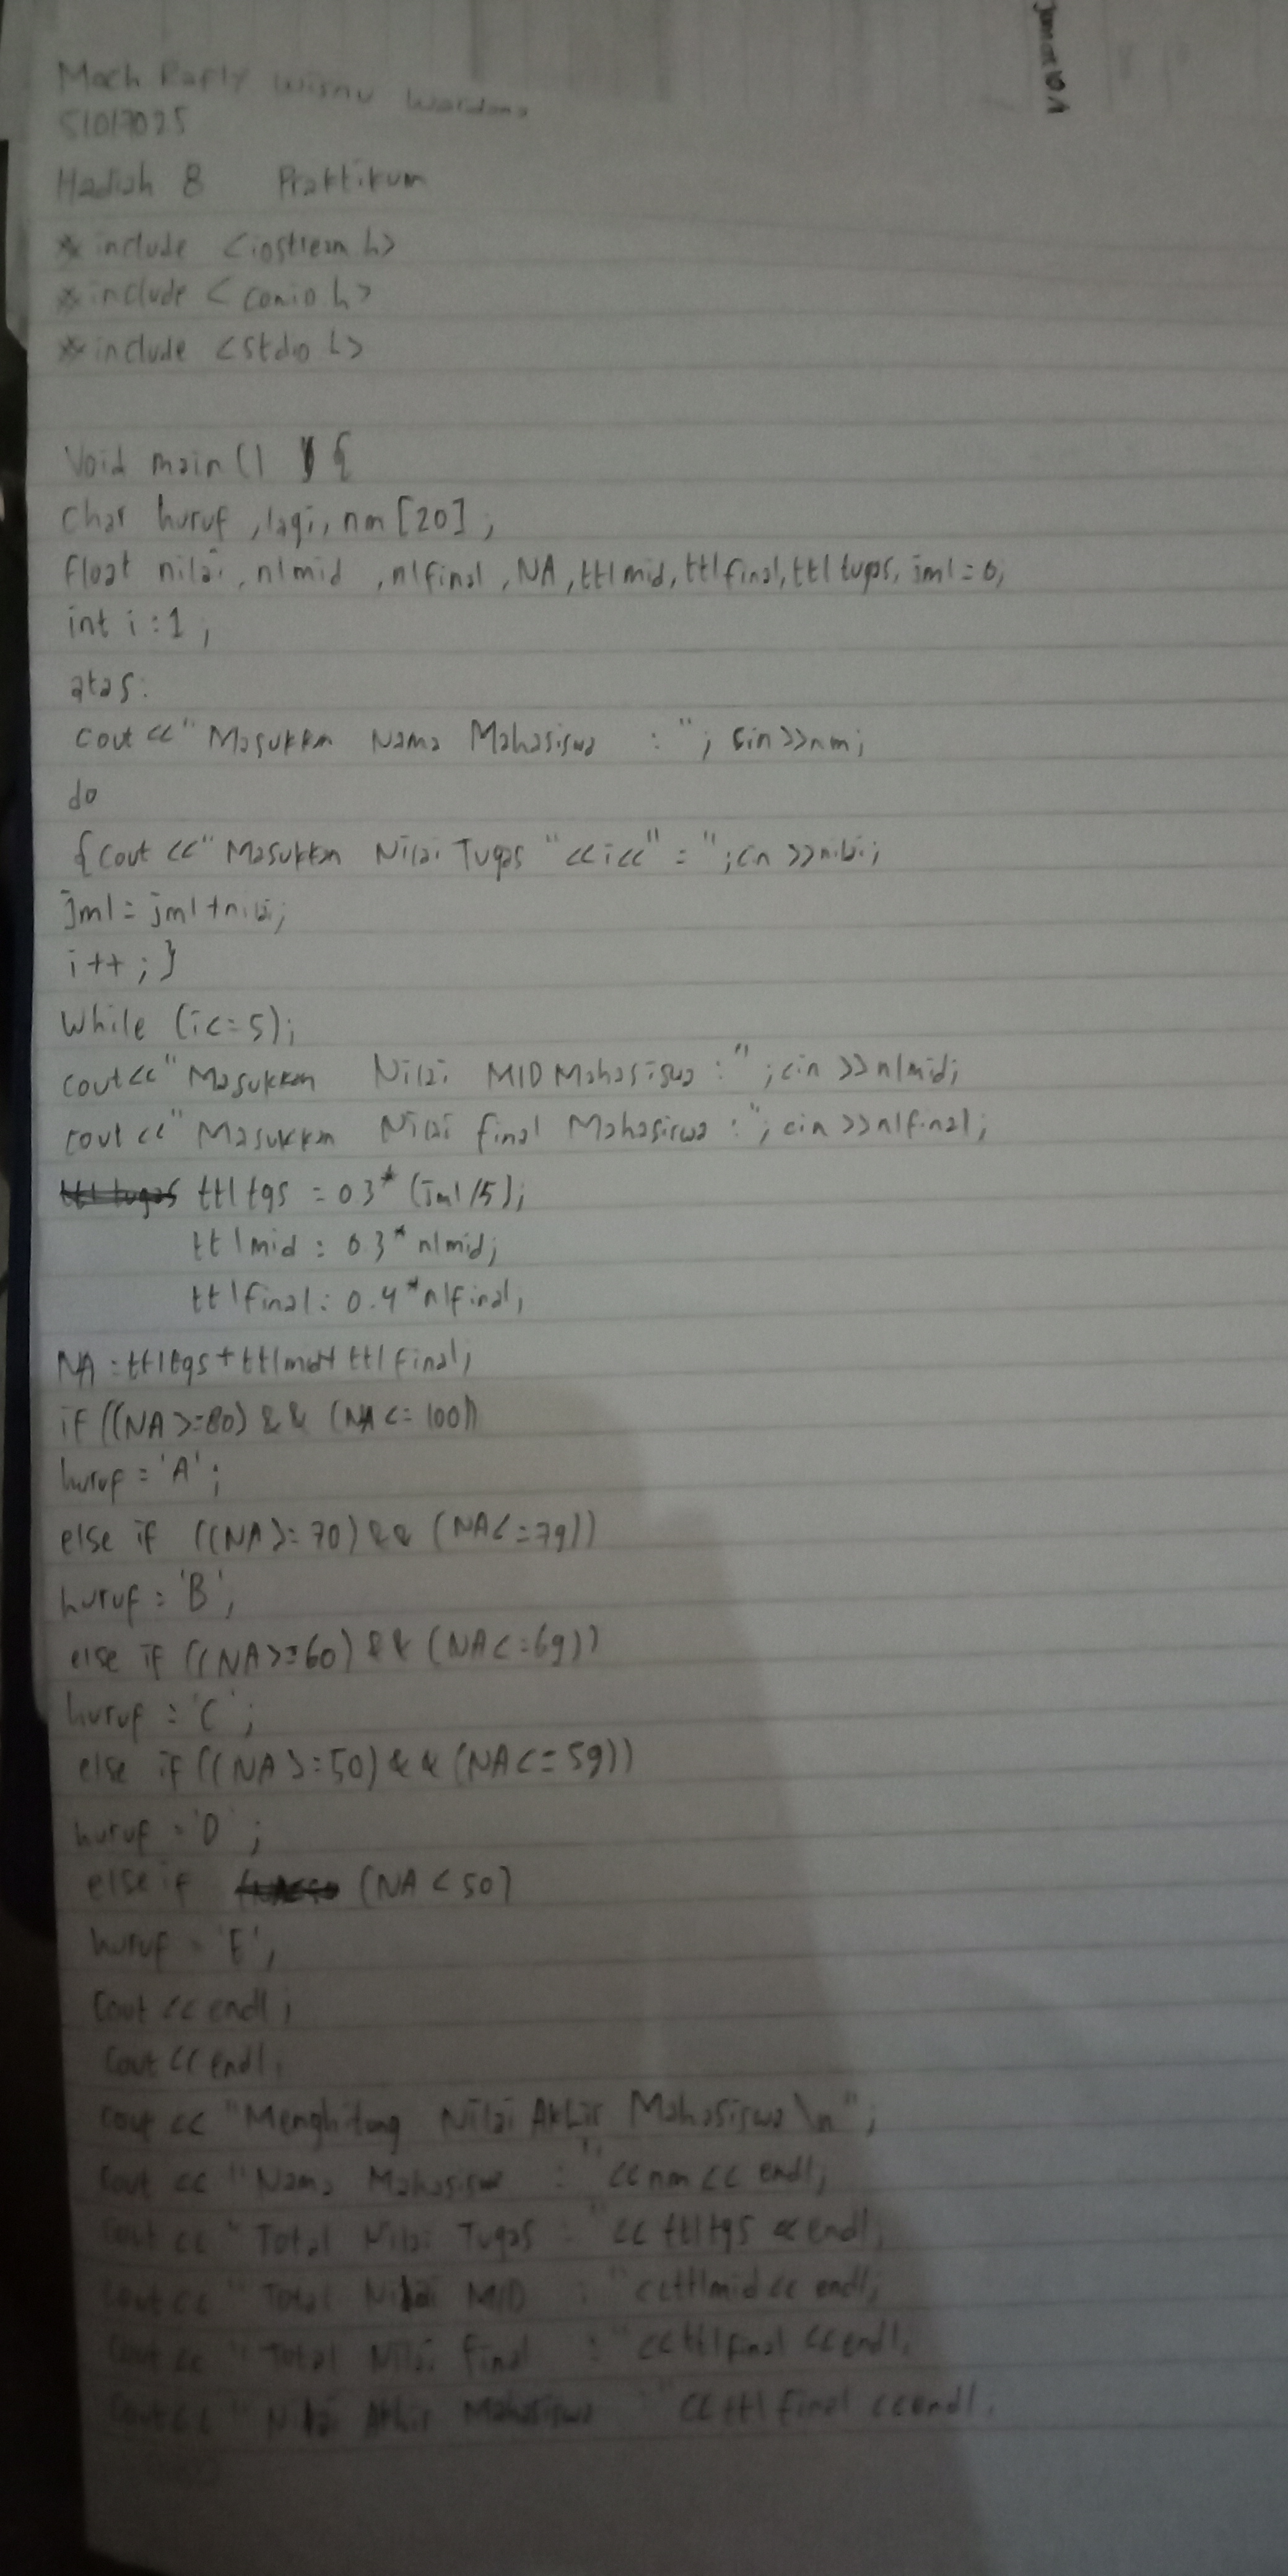 Moch Rafly Wisnu Wardana
51017025
Hadiah 8 Praktikum
* include <iostream h>
* include < conio h>
* include <stdio h>
Void main () {
Char huruf , lagi, nm [20] ;
Float nilai, nlmid , nlfinal , NA, ttlmid, ttlfinal, ttl tugas, jml = 0;
int i : 1 ;
atas:
cout << " Masukkan Nama Mahasiswa : " ; cin >>nm;
do
{ cout << " Masukkan Nilai Tugas " << i << " = " ; cin >>nilai;
jml = jml + nilai;
i ++ ; }
While (i <= 5);
cout << " Masukkan Nilai MID Mahasiswa : " ; cin >> nlmid;
cout << " Masukkan Nilai final Mahasiswa : " ; cin >> nlfinal;
ttl tgs = 0.3 * (jml /5);
ttlmid = 0.3 * nlmid;
ttlfinal = 0.4 * nlfinal;
NA = ttltgs + ttlmid + ttl final;
if ((NA >= 80) && (NA <= 100))
huruf = 'A' ;
else if ((NA >= 70) && (NA <= 79))
huruf = 'B' ;
else if ((NA >= 60) && (NA <= 69))
huruf = 'C' ;
else if ((NA >= 50) && (NA <= 59))
huruf = 'D' ;
else if (NA < 50)
huruf = 'E' ;
Cout << endl ;
Cout << endl ;
cout << "Menghitung Nilai Akhir Mahasiswa \n" ;
Cout << " Nama Mahasiswa : " << nm << endl;
Cout << " Total Nilai Tugas : " << ttltgs << endl;
Cout << " Total Nilai MID : " << ttlmid << endl;
Cout << " Total Nilai Final : " << ttlfinal << endl;
Cout << " Nilai Akhir Mahasiswa " << ttl final << endl.